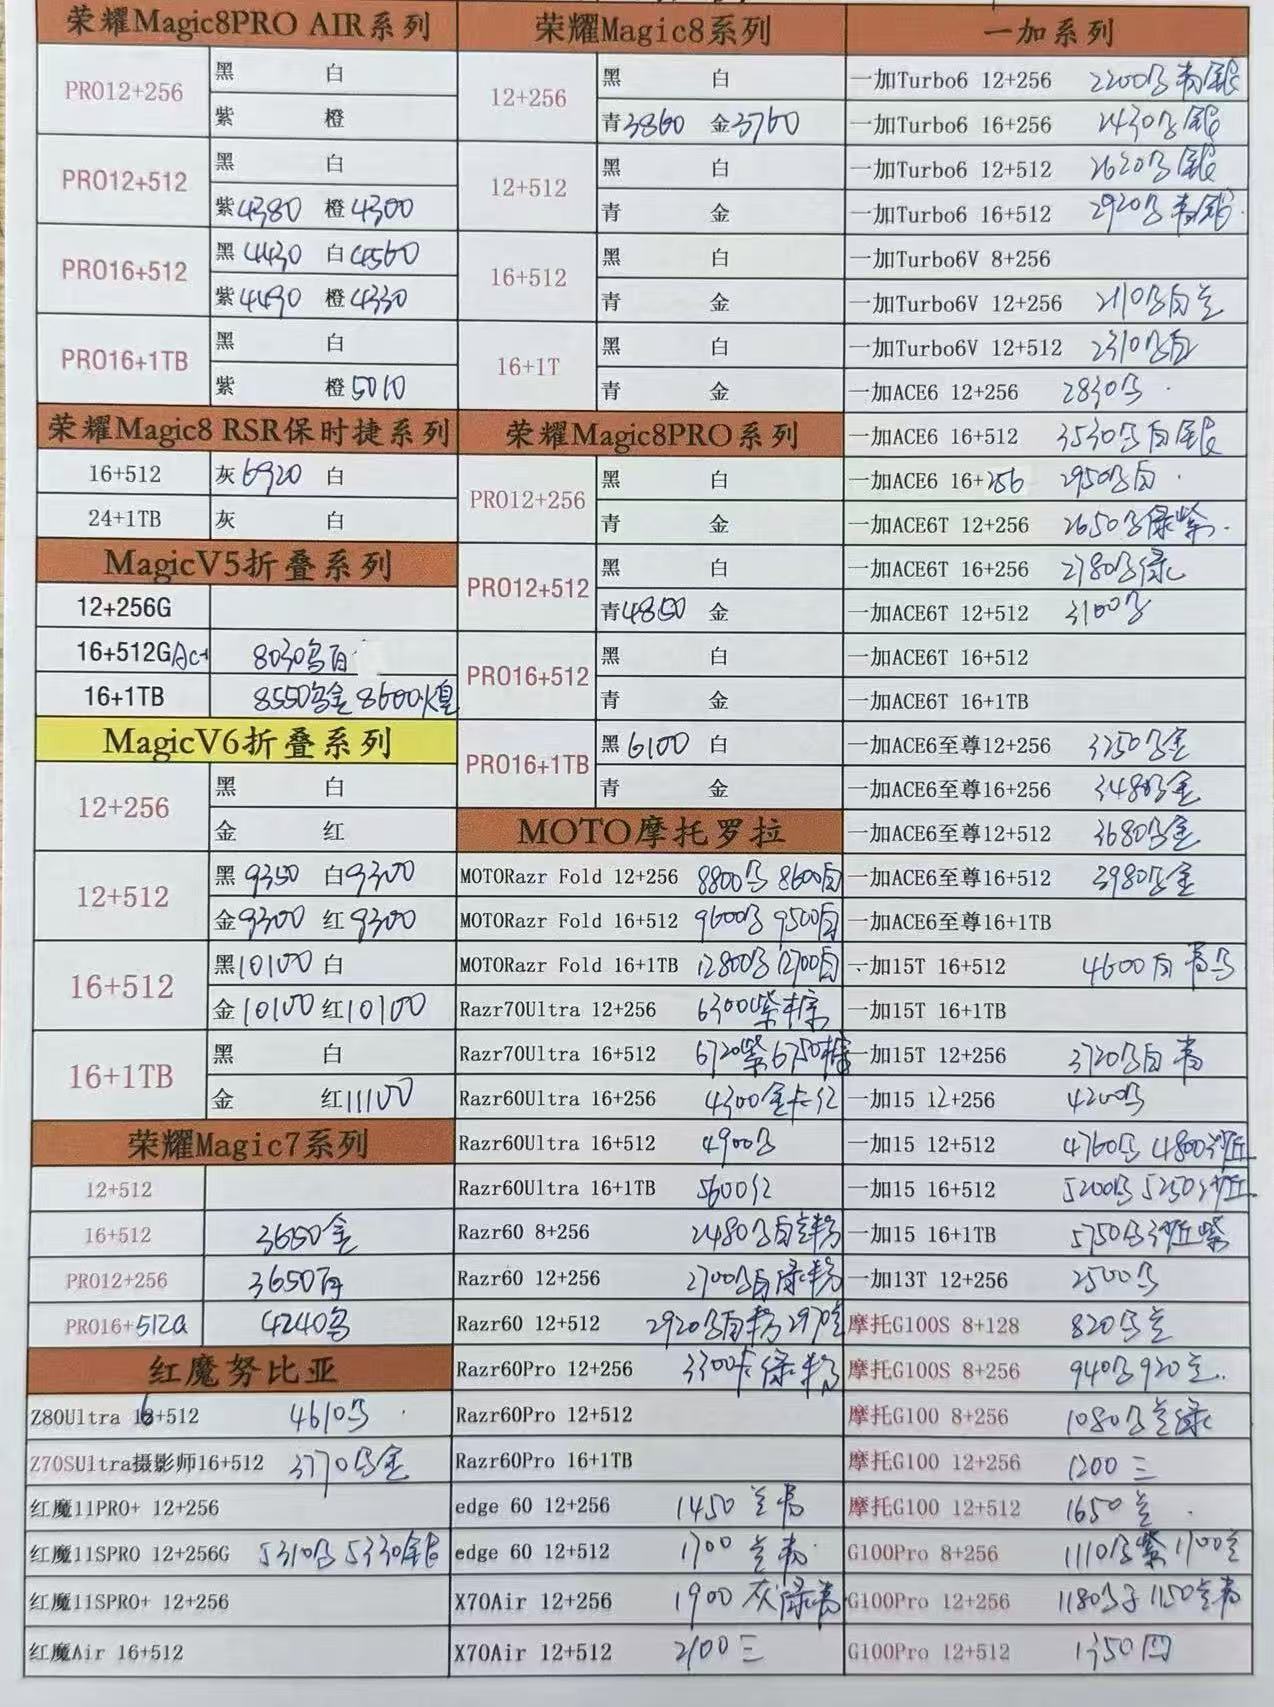 荣耀Magic8PRO AIR系列
PRO12+256 黑 白
紫 橙
PRO12+512 黑 白
紫4380 橙4300
PRO16+512 黑4430 白4560
紫4490 橙4330
PRO16+1TB 黑 白
紫 橙5010
荣耀Magic8 RSR保时捷系列
16+512 灰6920 白
24+1TB 灰 白
MagicV5折叠系列
12+256G
16+512G 8030乌白
16+1TB 8550乌金 8600
MagicV6折叠系列
12+256 黑 白
金 红
12+512 黑9350 白9300
金9300 红9300
16+512 黑10100 白
金10100 红10100
16+1TB 黑 白
金 红11100
荣耀Magic7系列
12+512
16+512 3650金
PRO12+256 3650白
PRO16+512G 4240乌
红魔努比亚
Z80Ultra 16+512 4610乌
Z70SUltra摄影师16+512 3770乌金
红魔11PRO+ 12+256
红魔11SPRO 12+256G 5310乌 5330银
红魔11SPRO+ 12+256
红魔Air 16+512
荣耀Magic8系列
12+256 黑 白
青3860 金3760
12+512 黑 白
青 金
16+512 黑 白
青 金
16+1T 黑 白
青 金
荣耀Magic8PRO系列
PRO12+256 黑 白
青 金
PRO12+512 黑 白
青4850 金
PRO16+512 黑 白
青 金
PRO16+1TB 黑6100 白
青 金
MOTO摩托罗拉
MOTORazr Fold 12+256 8800乌 8600白
MOTORazr Fold 16+512 9600乌 9500白
MOTORazr Fold 16+1TB 12800乌 12700白
Razr70Ultra 12+256 6300紫棕
Razr70Ultra 16+512 6720紫 6750棕
Razr60Ultra 16+256 4300金卡红
Razr60Ultra 16+512 4900乌
Razr60Ultra 16+1TB 5600红
Razr60 8+256 2480乌白兰粉
Razr60 12+256 2700乌白绿粉
Razr60 12+512 2920乌白粉 2970兰
Razr60Pro 12+256 3300卡绿粉
Razr60Pro 12+512
Razr60Pro 16+1TB
edge 60 12+256 1450兰青
edge 60 12+512 1700兰青
X70Air 12+256 1900灰绿青
X70Air 12+512 2100三
一加系列
一加Turbo6 12+256 2200乌青银
一加Turbo6 16+256 2430乌银
一加Turbo6 12+512 2620乌银
一加Turbo6 16+512 2920乌青银
一加Turbo6V 8+256
一加Turbo6V 12+256 2110乌白兰
一加Turbo6V 12+512 2310乌白
一加ACE6 12+256 2830乌
一加ACE6 16+512 3530乌白银
一加ACE6 16+256 2950乌白
一加ACE6T 12+256 2650乌绿紫
一加ACE6T 16+256 2780乌绿
一加ACE6T 12+512 3100乌
一加ACE6T 16+512
一加ACE6T 16+1TB
一加ACE6至尊12+256 3250乌金
一加ACE6至尊16+256 3480乌金
一加ACE6至尊12+512 3680乌金
一加ACE6至尊16+512 3980乌金
一加ACE6至尊16+1TB
一加15T 16+512 4600白青乌
一加15T 16+1TB
一加15T 12+256 3720乌白青
一加15 12+256 4200乌
一加15 12+512 4760乌 4800沙丘
一加15 16+512 5200乌 5250沙丘
一加15 16+1TB 5750乌沙丘紫
一加13T 12+256 2500乌
摩托G100S 8+128 820乌兰
摩托G100S 8+256 940乌 920兰
摩托G100 8+256 1080乌兰绿
摩托G100 12+256 1200三
摩托G100 12+512 1650兰
G100Pro 8+256 1110乌紫 1100兰
G100Pro 12+256 1180乌 1150兰青
G100Pro 12+512 1350四